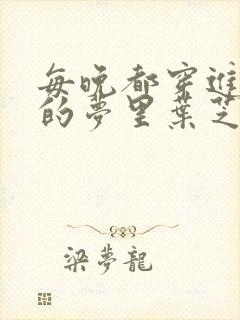 每晚都穿進
的夢里葉芝
梁夢龍